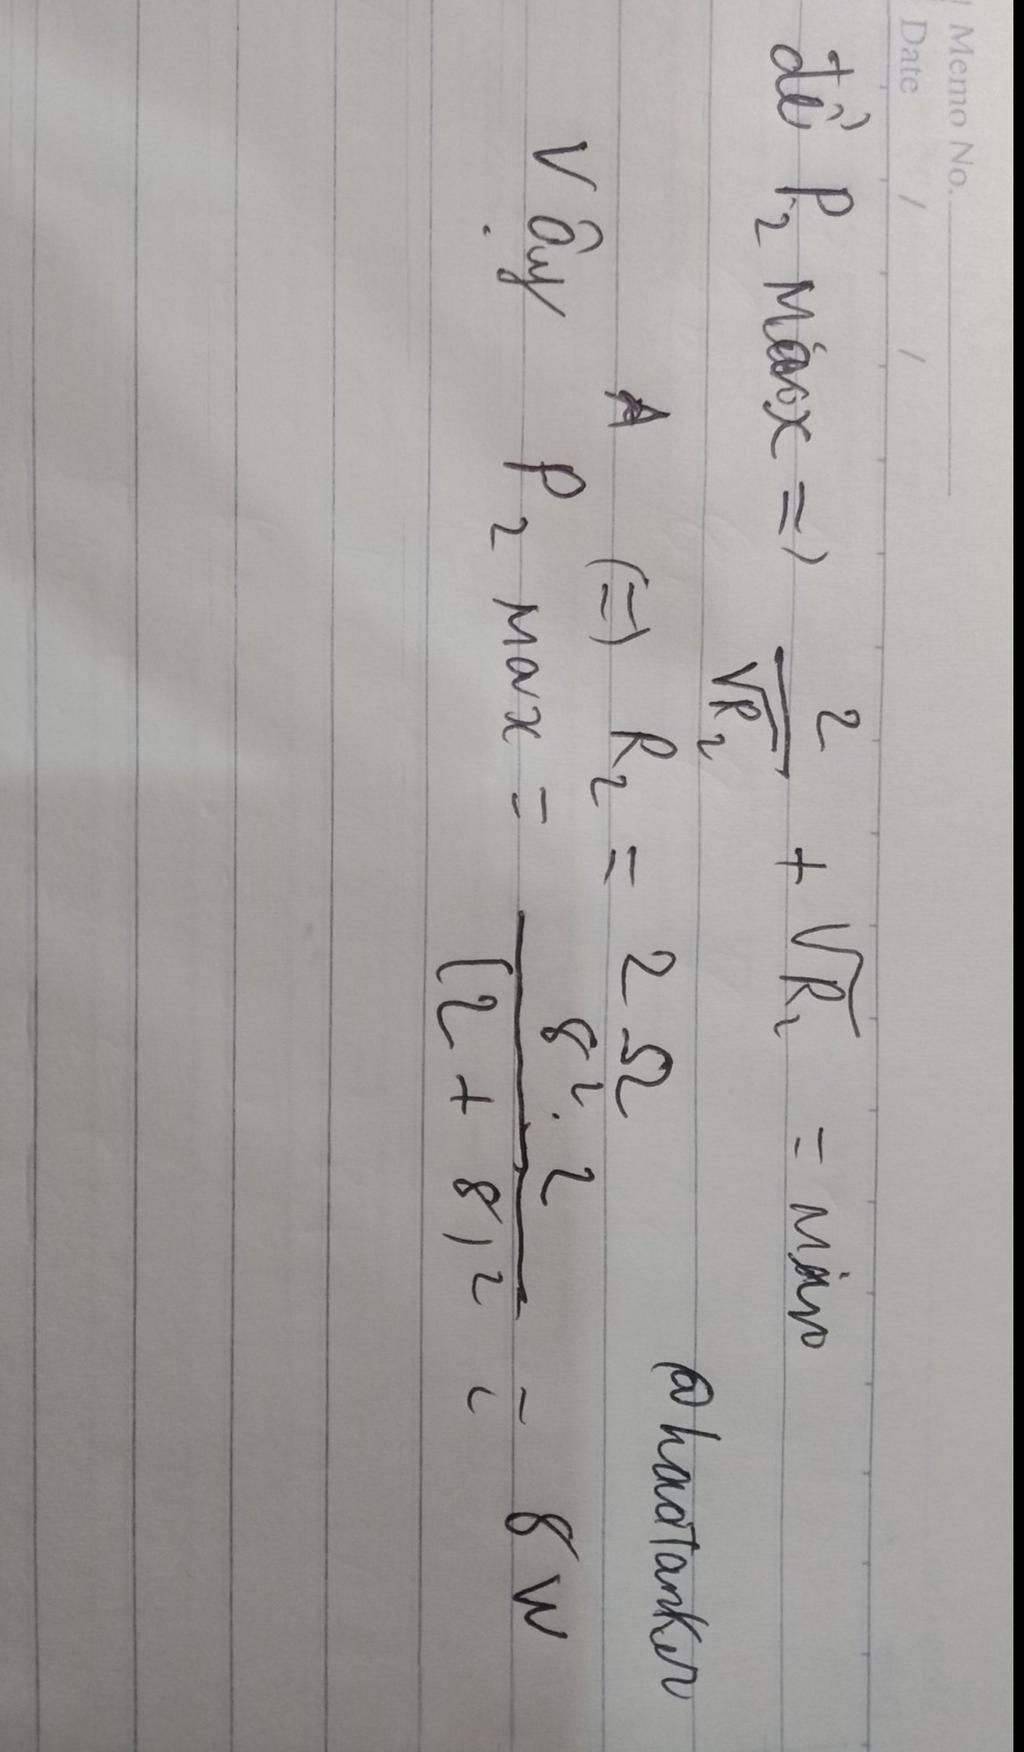 Memo No.
Date / /
để P₂ Max => 2/√R₂ + √R₂ = min
@haatanker
A (=) R₂ = 2 Ω
Vậy P₂ max = 8².2/(2 + 8)² = 8 W